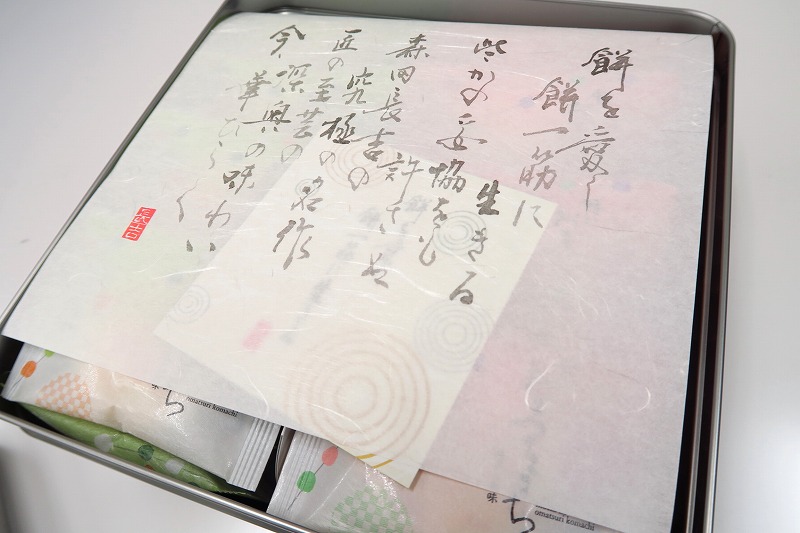 餅を愛し
餅一筋に
生きる
些かの妥協をも
許さぬ
森田長吉の
究極の名作
匠の至芸の
今、深奥の味わい
華ひらく
長吉
ち
omatsuri komachi
味
ち
omatsuri komachi